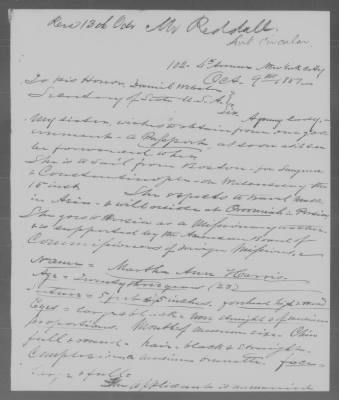 Recd 13th Octr Mr Reddall.
Sent Circular
102. 5th Avenue New York City
Oct. 9th 1851
To his Honor, Daniel Webster
Secretary of State U.S.A.
Sir, A young lady,
My sister, wishes to obtain from our gov
ernment a Passport, as soon as it can
be forwarded, when
She is to sail from Boston for Smyrna
& Constantinople on Wednesday the
15 inst. She expects to travel
in Asia & will reside at Oroomiah Persia
She goes to Persia as a Missionary
& is supported by the American Board of
Commissioners of Foreign Missions,
Name = Martha Ann Harris.
Age = Twenty three years (23)
Stature = 5 feet 5 inches. forehead high & round
Eyes = large black Nose straight & of medium
proportions. Mouth of medium size. Chin
full & round. hair black & straight.
Complexion a medium brunette. face
large & full.
The applicant is unmarried